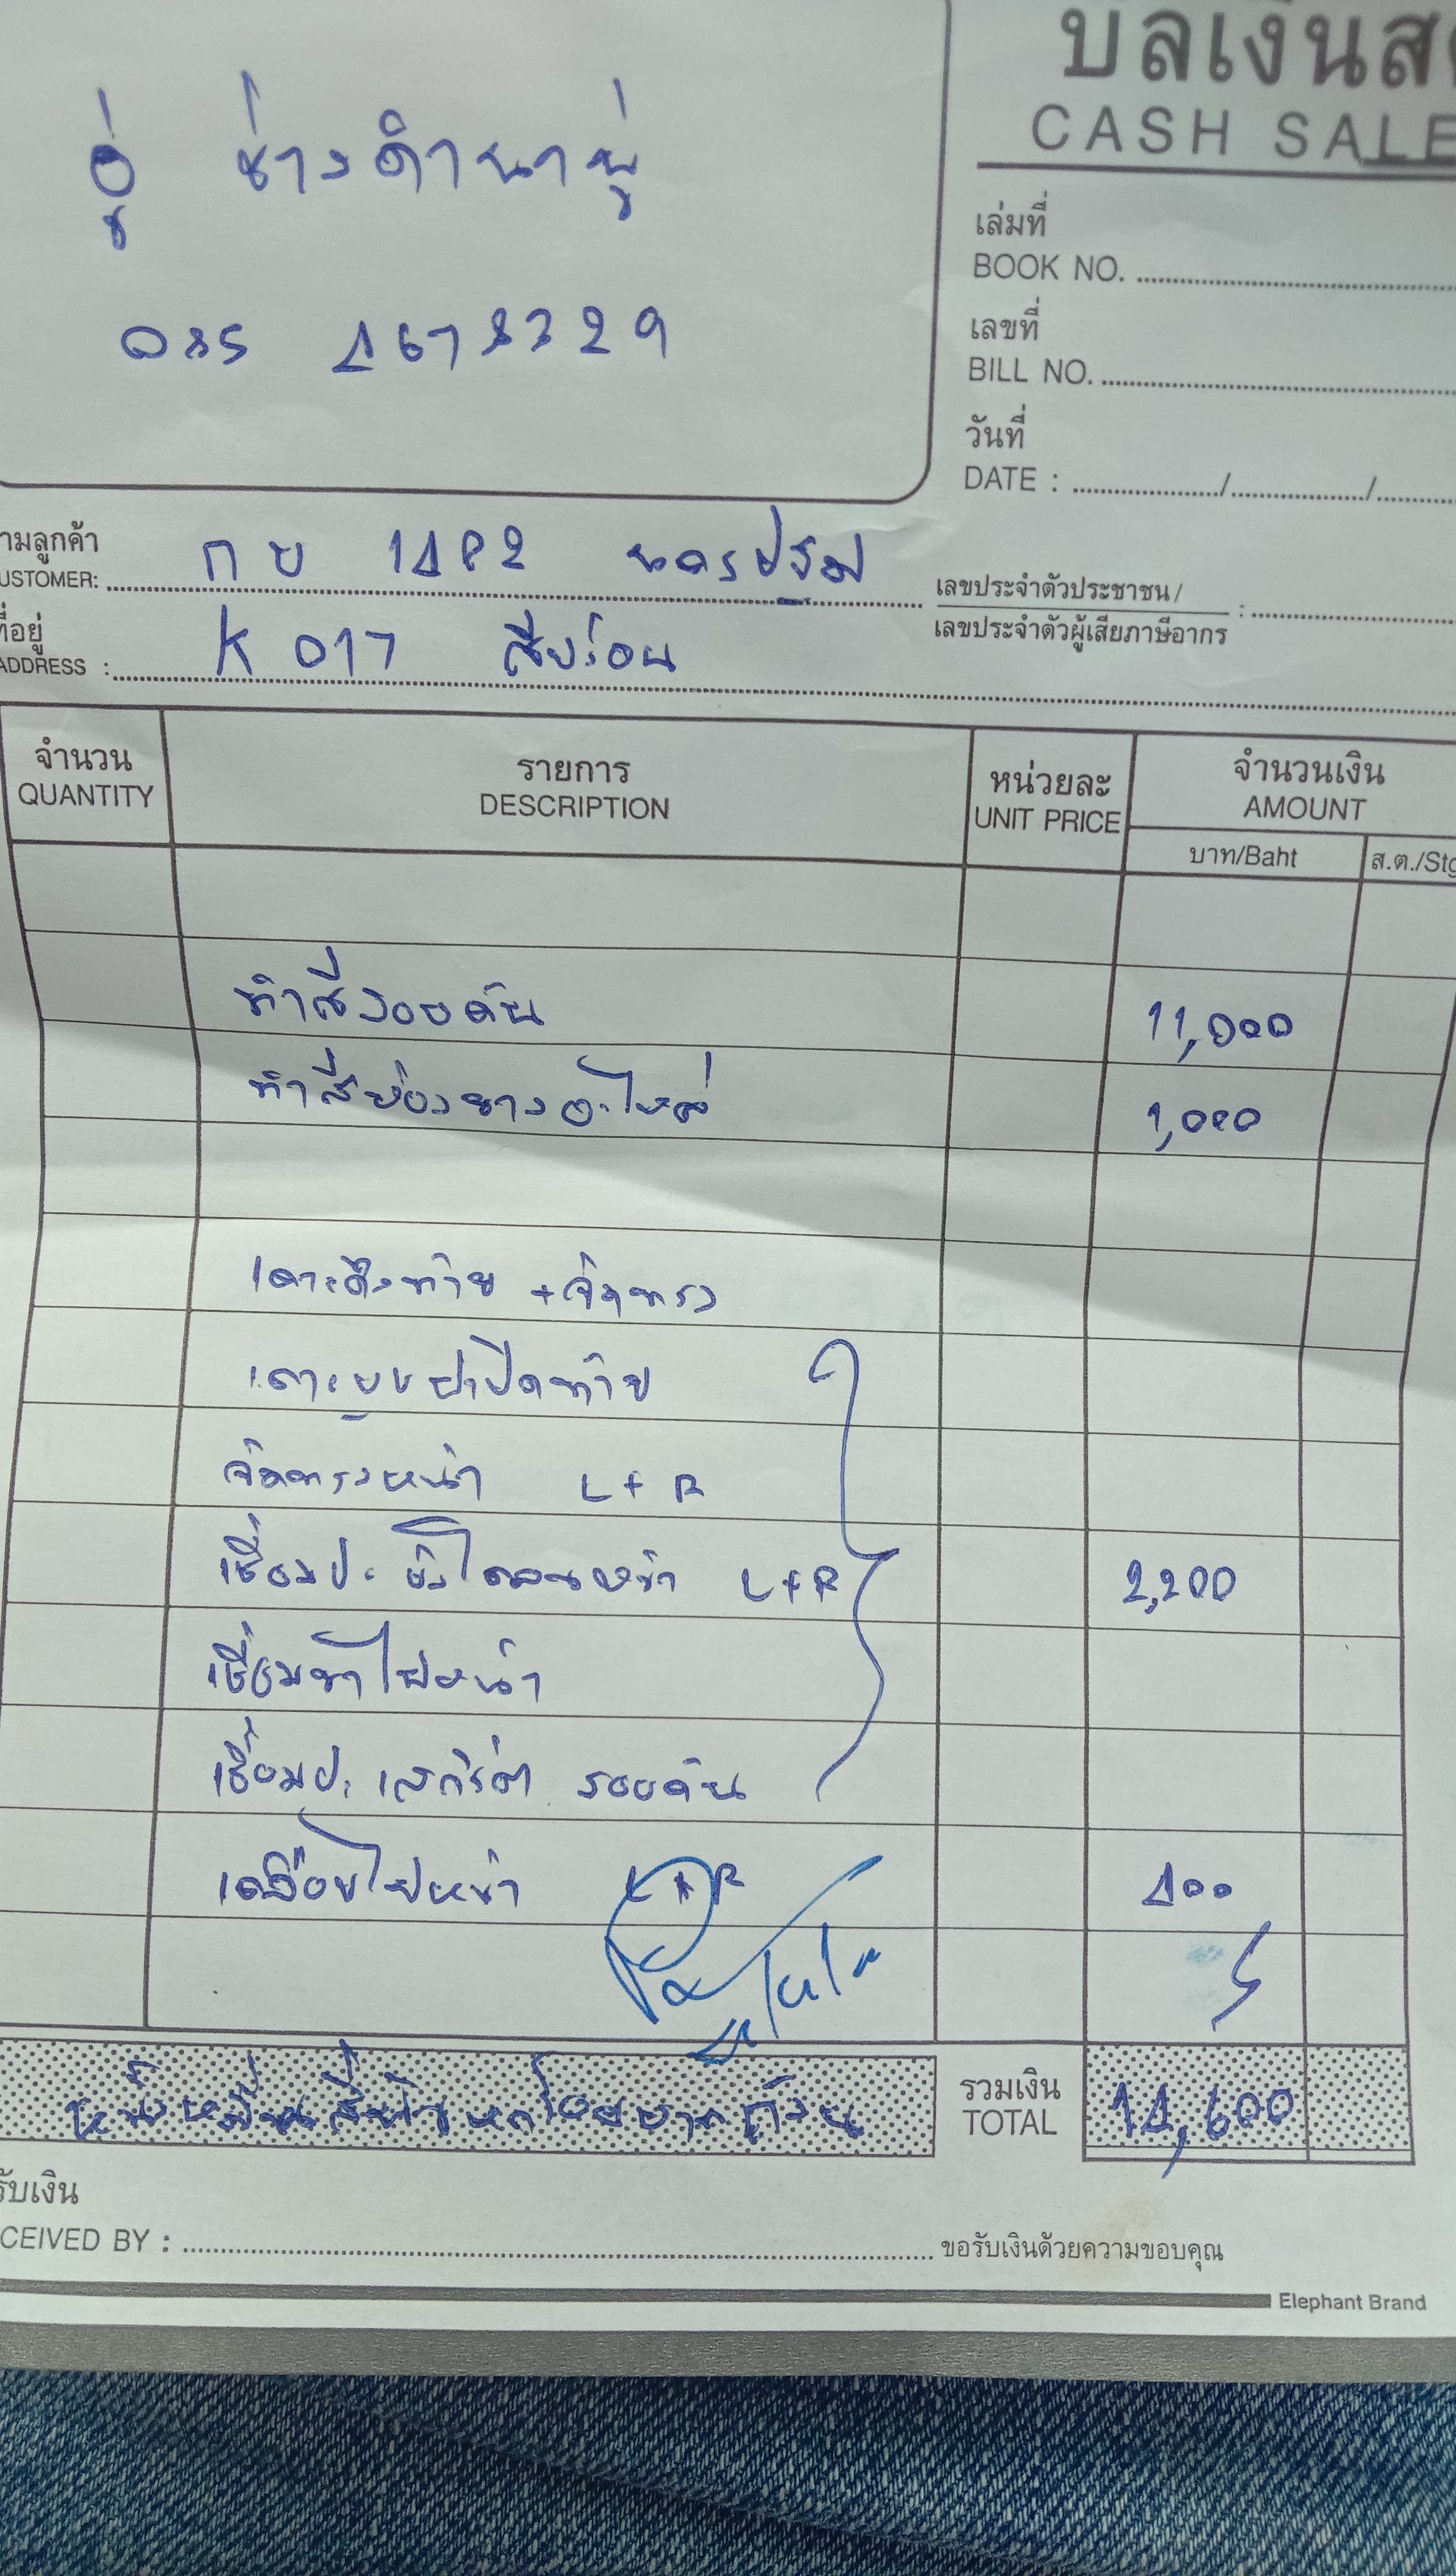 บิลเงินส
CASH SALE
อู่ ช่างดำนาขู่
เล่มที่
BOOK NO.
เลขที่
BILL NO.
085
วันที่
DATE : / /
ามลูกค้า
USTOMER: กข 1482 นครปฐม
เลขประจำตัวประชาชน/
เลขประจำตัวผู้เสียภาษีอากร :
ที่อยู่
ADDRESS : K 017
จำนวน
QUANTITY
รายการ
DESCRIPTION
หน่วยละ
UNIT PRICE
จำนวนเงิน
AMOUNT
บาท/Baht ส.ต./Stg
ทำสีรอบคัน 11,000
ทำสีห้องยางอะไหล่ 1,000
เคาะดึงท้าย + จัดทรง
เคาะ ฝาปิดท้าย
จัดทรงหน้า L + R
เชื่อมปะ บังโคลนหน้า L + R 2,200
เชื่อมขาไฟหน้า
เชื่อมปะ สเกิร์ต รอบคัน
เคลือบไฟหน้า L + R 400
หนึ่งหมื่นสี่พันหกร้อยบาทถ้วน
รวมเงิน
TOTAL
14,600
รับเงิน
CEIVED BY :
ขอรับเงินด้วยความขอบคุณ
Elephant Brand